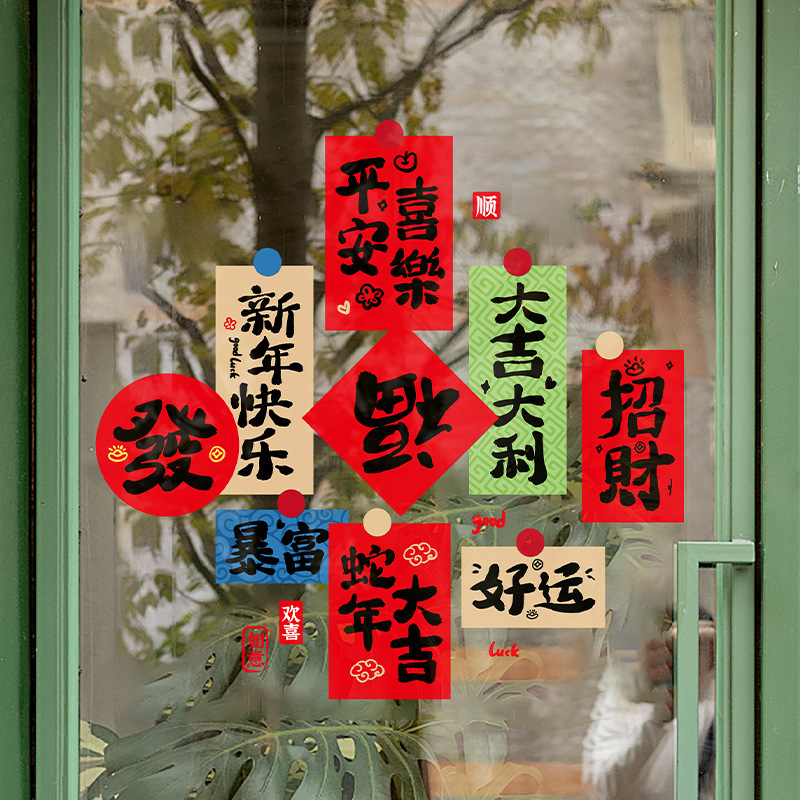 平安
喜樂
顺
新年快乐
good luck
大吉大利
招財
發
福
暴富
蛇年
大吉
good
好运
luck
欢喜
如意